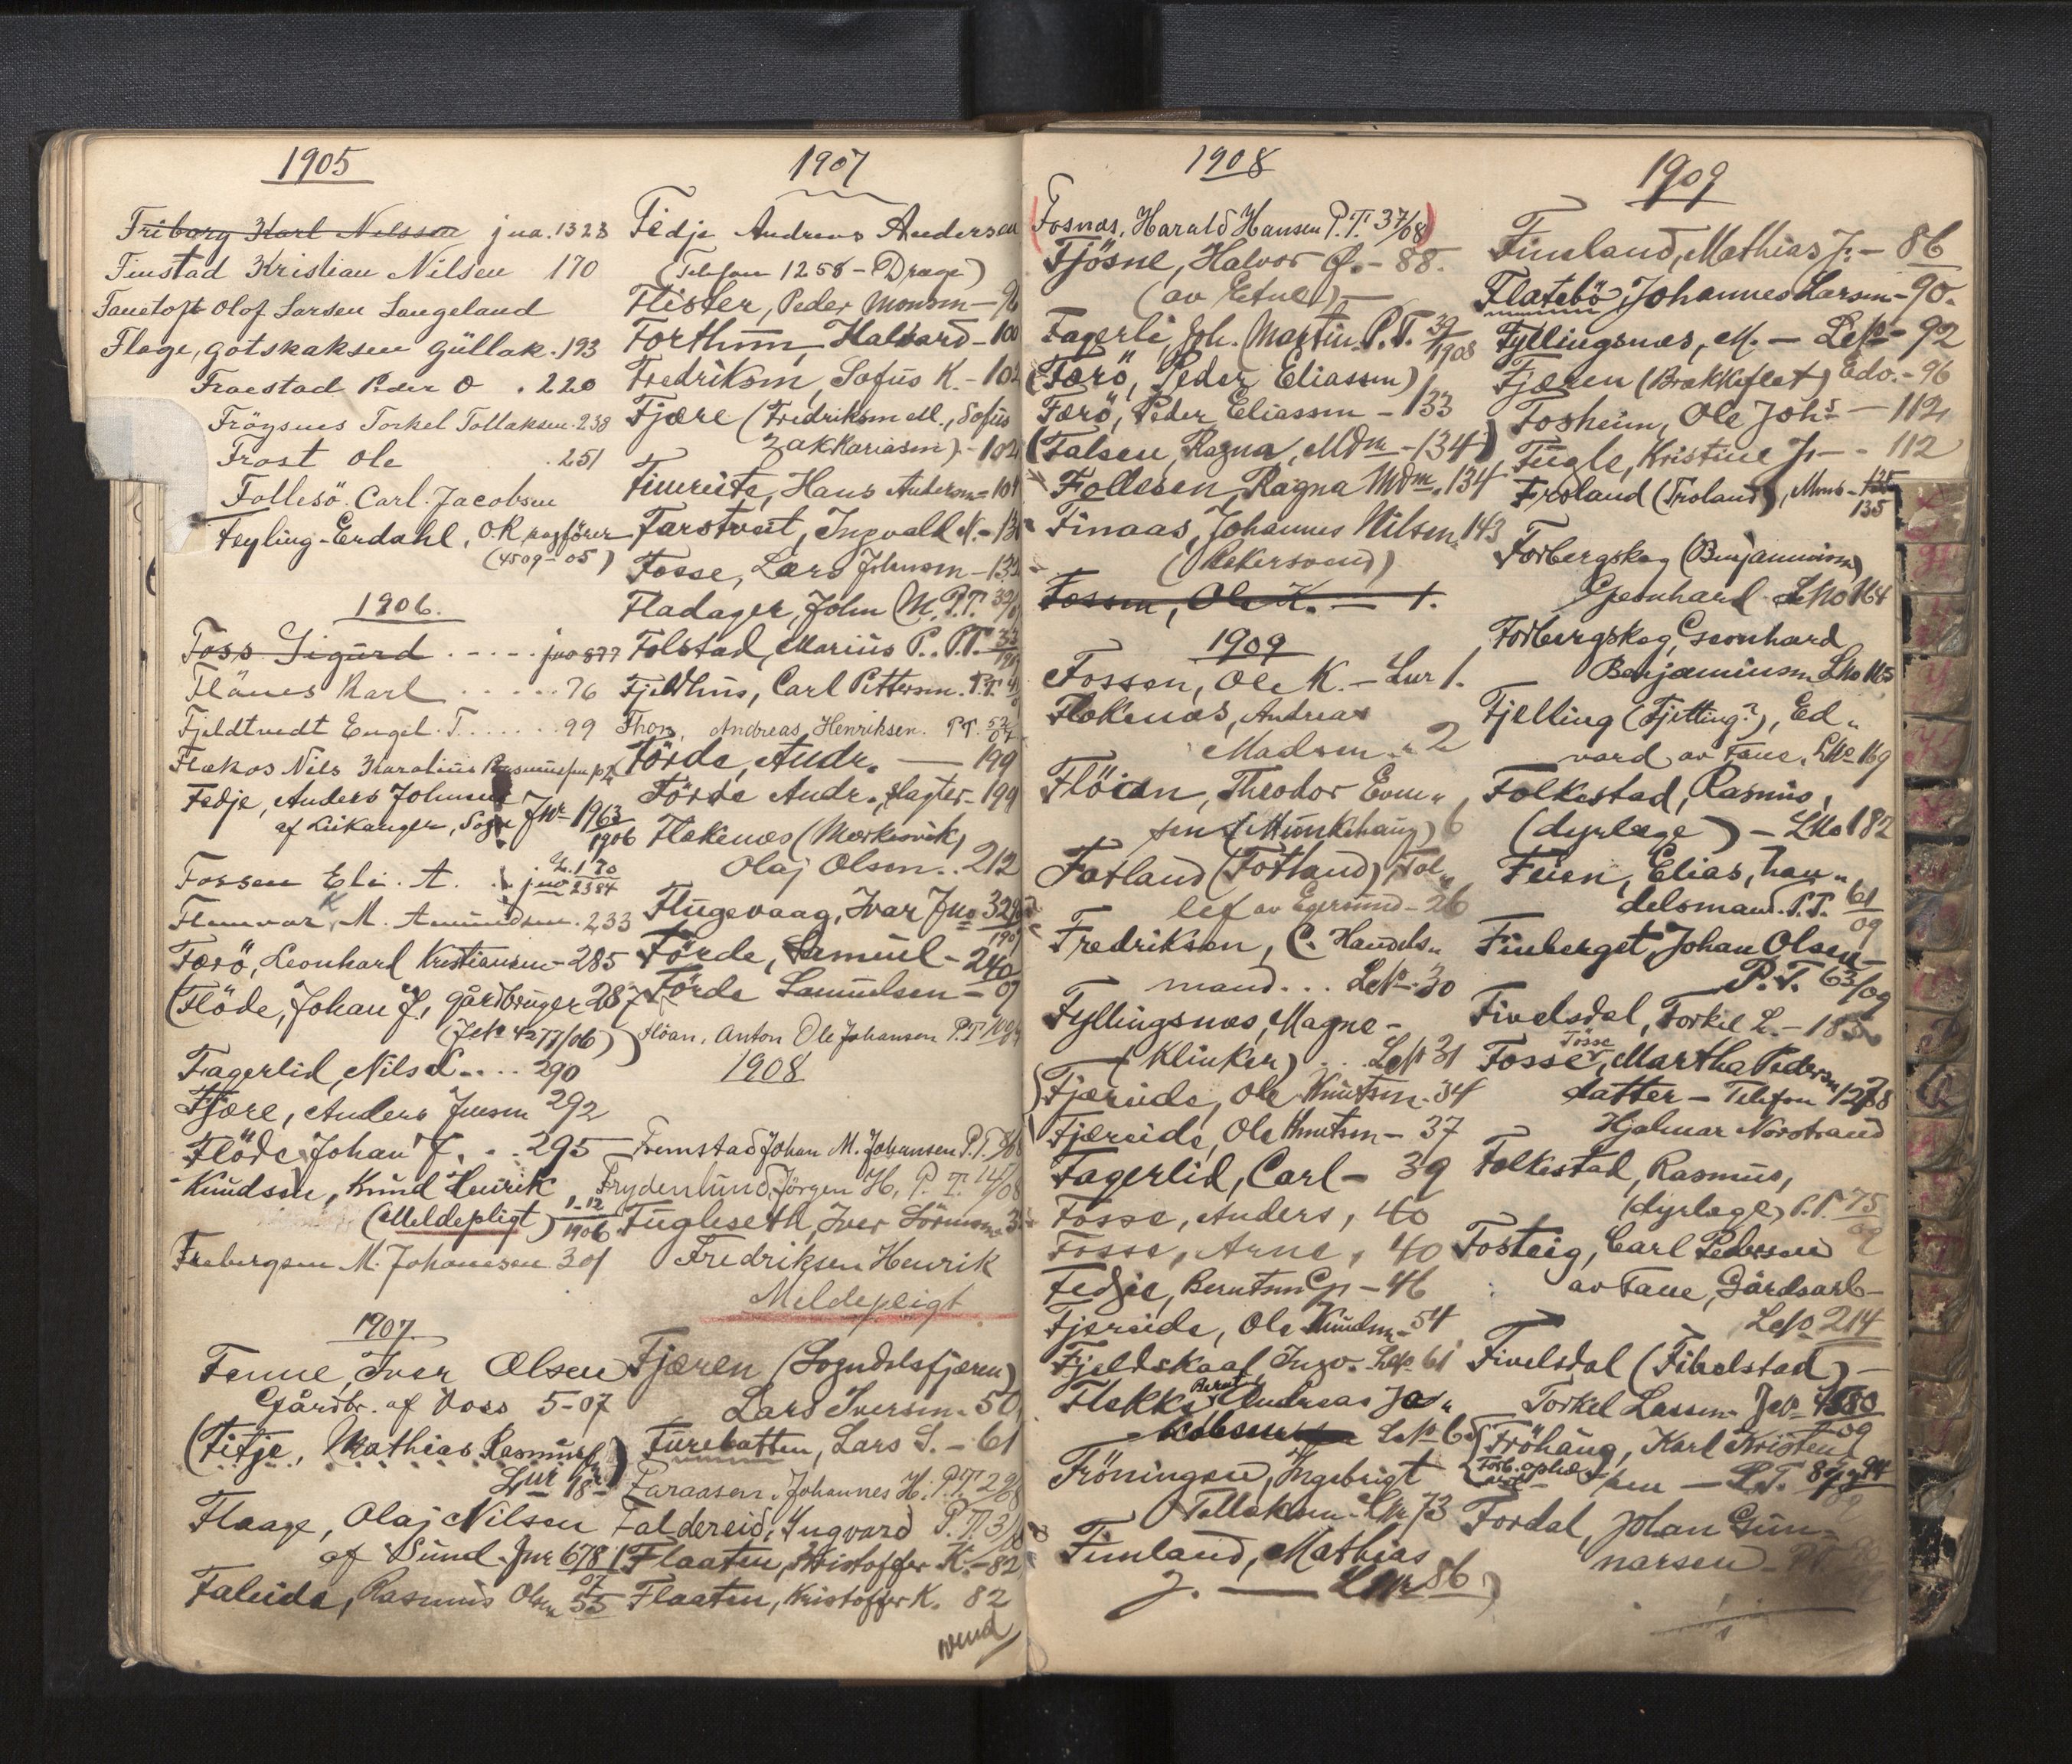 1905
Friborg Karl Nilsson jna. 1328
Finstad Kristian Nilsen 170
Fanetoft Olof Larsen Langeland
Flage, Gotskaksen Güllak. 193
Fraestad Peder O . 220
Fröysnes Torkel Tollaksen. 238
Frost Ole . 251
Follesö Carl. Jacobsen
Feyling-Erdahl, O.R.
(4509-05)
1906.
Foss Sigurd . . . . . jno 877
Flånes Karl . . . . . 76
Fjeldtvedt Engel. T. . . . . . 99
Flekos Nils Karolius
Fedje, Anders Johnsen
af Leikanger, Sogn Jnr 1963/1906
Fossen Eli. A. 170
jno 2384
M. Amundsen. 233
Færö, Leonhard Kristiansen - 285
(Flöde, Johan J., gårdbruger 287
(Jno 4277/06)
Fagerlid, Nils L. . . . 290
Fjære, Anders Jensen 292
Flöde Johan J. . . . 295
Knudsen, Knud Henrik
(Meldepligt) 1-12/1906
M. Johannesen 301
1907.
Fenne, Iver Olsen
Gårdbr. af Voss 5-07
(Fitje, Mathias Rasmusen)
Lnr 18
Flaage, Olaj Nilsen
af Sund. Jnr 678/07
Faleide, Rasmus Olsen 55
1907
Fedje Andreas Andersen
(Telefon 1258 - Drage)
Flisler, Peder Monsen - 96
Forthun, Halvard - 100
Fredriksen, Sofus K. - 102
Fjære (Fredriksen el., Sofus
Zakkariasen) - 102
Fimreite, Hans Andersen - 104
Farstvet, Ingvald N. -
Fosse, Lars Johnsen -
Fladager, John M. P.T.
Folstad, Marius P. . P.T.
Fjeldhus, Carl Pettersen. P.T.
Thon, Andreas Henriksen. P.T.
Förde, Andr. — 199
Förde Andr., Slagter - 199
Flokenæs (Morkesvik)
Olaj Olsen. . 212
Flugevaag, Ivar Jno
Förde, Samuel - 240
Förde Samuelsen - 07
Floan, Anton Ole Johansen P.T.
1908
Fremstad Johan M. Johansen P.T.
Frydenlund, Jörgen H. P.T. 14/08
Fugleseth, Iver
Fredriksen Henrik
Meldepligt
Fjæren (Sogndalsfjæren)
Lars Iversen. 50
Furebotten, Lars S. - 61
Faraasen. Johannes H. P.T.
Faldereid, Yngvard P.T.
Flaaten, Kristoffer K. - 82
Flaaten, Kristoffer K. 82
vend
1908
(Fosnæs, Harald Hansen P.T. 37/08)
Fjösne, Halvor Ø. - 88.
(av Etne) —
Fagerli, Joh. Martin P.T. 39/1908
(Færö, Peder Eliassen)
Færö, Peder Eliassen - 133
(Falsen, Ragna, Mdm - 134)
Follesen, Ragna Mdm. 134
Finaas, Johannes Nilsen. 143
(Rekersvend)
Fossen, Ole K. — 1.
1909
Fossen, Ole K. - Lnr 1.
Flokenæs, Andreas
Madsen - 2
Flöien, Theodor Even-
sen (Munkehaug) 6
Fatland (Fotland), Tol-
lef av Egersund - 26
Fredriksen, C. Handels-
mand. . . LNo. 30
Fyllingsnæs, Magne -
(Klinker) . . LNo 31
Fjæreide, Ole Knutsen. 34
Fjæreide, Ole Knutsen - 37
Fagerlid, Carl - 39
Fosse, Anders, 40
Fosse, Arne, 40
Fedje, Berntsen - 46
Fjæreide, Ole Knudsen. 54
Fjeldskaal Ingv. LNo 61
Flekke Bernt Andreas Ja-
kobsen LNo 6
Fröningen, Ingebrigt
Tollaksen. LNr 73
Fimland, Mathias
J. — LNr 86
1909
Fimeland, Mathias J. - 86
Flatebö, Johannes Larsen - 90.
Fyllingsnæs, M. - LNo - 92
Fjæren (Brækkeflæt) Edv. - 96
Fosheim, Ole Johs - 112
Fugle, Kristine J. - 112
Froland (Troland), Mons - 135
135
Forbergskog (Benjaminsen)
Geonhard LNo 164
Forbergskog, Geonhard
Benjaminsen LNo 165
Fjelling (Fjetting?), Ed-
vard av Fane. LNo 169
Folkestad, Rasmus,
(dyrlæge) - LNo 182
Feien, Elias, han-
delsmand. P.T. 61/09
Finberget, Johan Olsen -
P.T. 63/09
Fivelsdal, Torkel L. - 185
Tösse
Fosse, Martha Peders-
datter - Telefon 1238
Hjalmar Norstrand
Folkestad, Rasmus,
(dyrlæge) P.T. 75/09
Fosteig, Carl Pedersen
av Fane, Gårdsarb -
LNo 214
Fivelsdal (Fibelstad) -
Torkel Lassen. JNo 4580/09
(Fröhaug, Karl Kristen-
sen - P.T.
Fordal, Johan Gun-
narsen